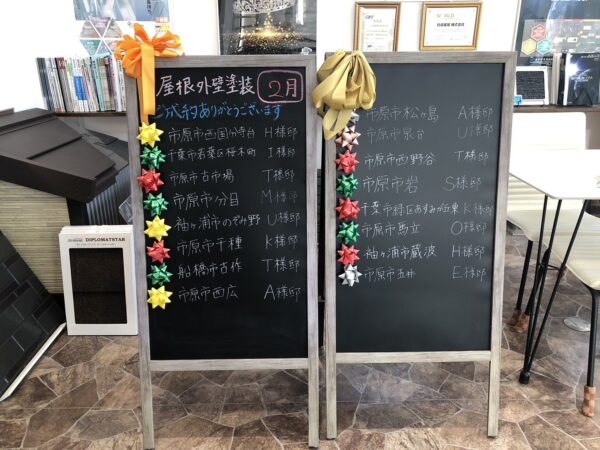 屋根・外壁塗装 2月
ご成約ありがとうございます
市原市西国分寺台 H様邸
千葉市若葉区桜木町 I様邸
市原市古市場 T様邸
市原市分目 M様邸
袖ヶ浦市のぞみ野 U様邸
市原市千種 K様邸
船橋市古作 T様邸
市原市西広 A様邸
市原市松ヶ島 A様邸
市原市泉台 U様邸
市原市西野谷 T様邸
市原市岩 S様邸
千葉市緑区あすみが丘東 K様邸
市原市馬立 O様邸
袖ヶ浦市蔵波 H様邸
市原市五井 E様邸
DIPLOMATSTAR